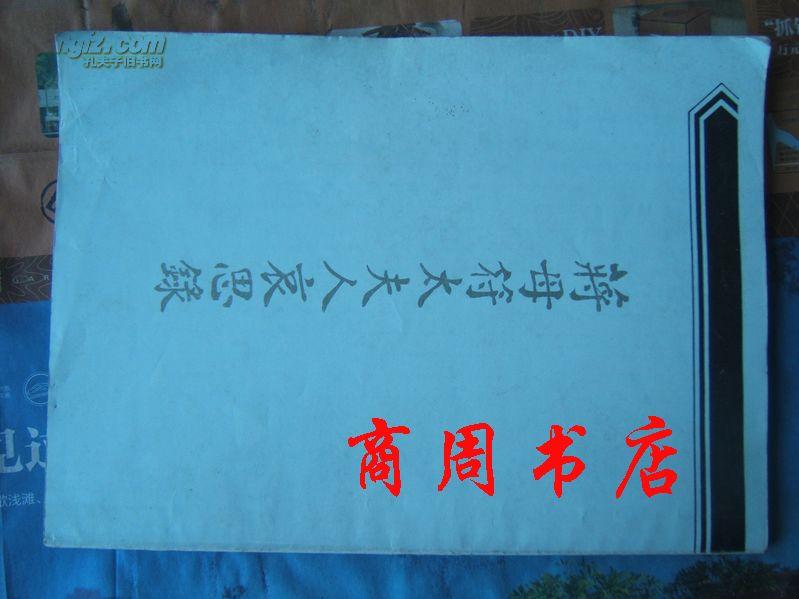 gfz.com
孔夫子旧书网
DIY
蔣母符太夫人哀思錄
商周书店
浅滩、